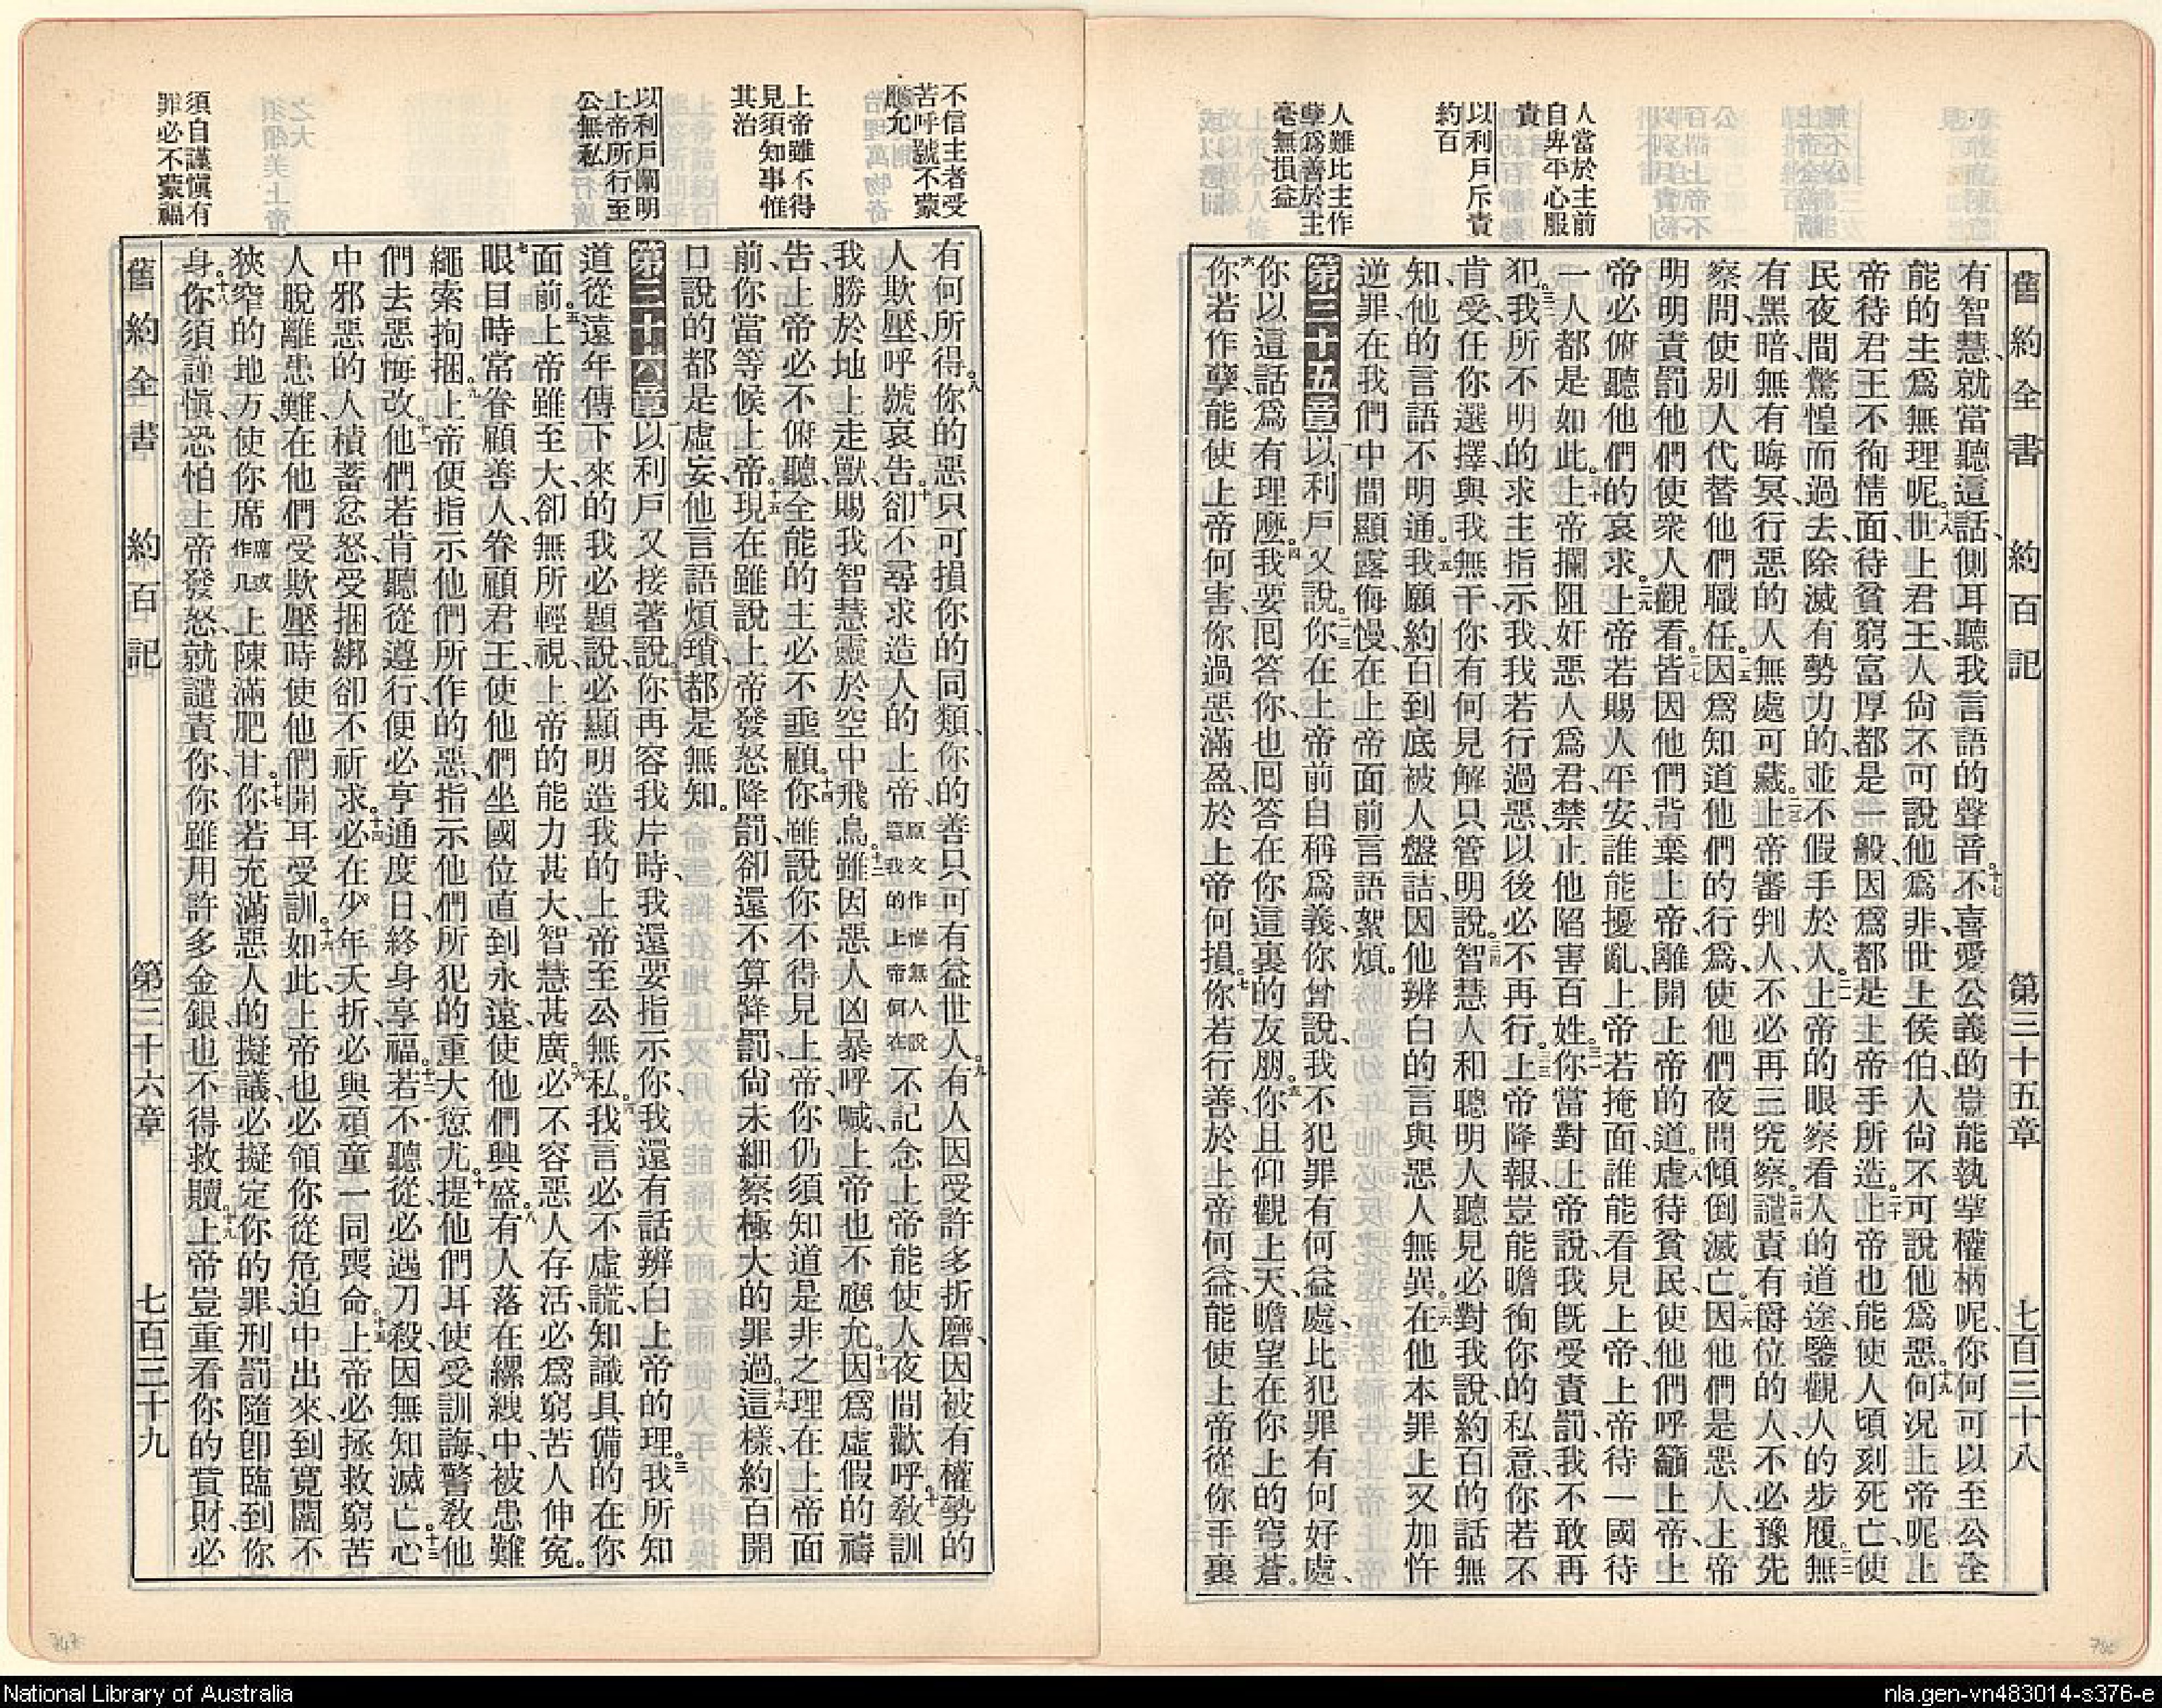 舊約全書 約百記 第三十五章 七百三十八
人當於主前
自卑平心服
責
以利戶斥責
約百
人難比主作
孽爲善於主
毫無損益
有智慧、就當聽這話、側耳聽我言語的聲音。十七不喜愛公義的、豈能執掌權柄呢、你何可以至公全
能的主爲無理呢。十八世上君王、人尙不可說他爲非、世上侯伯、人尙不可說他爲惡。十九何况上帝呢、上
帝待君王不徇情面、待貧窮富厚都是一般、因爲都是上帝手所造。二十上帝也能使人頃刻死亡、使
民夜間驚惶而過去、除滅有勢力的、並不假手於人。二一上帝的眼察看人的道途、鑒觀人的步履。二二無
有黑暗、無有晦冥、行惡的人無處可藏。二三上帝審判人、不必再三究察。二四譴責有爵位的人、不必豫先
察問、使別人代替他們職任。二五因爲知道他們的行爲、使他們夜間傾倒滅亡。二六因他們是惡人、上帝
明明責罰他們、使衆人觀看。二七皆因他們背棄上帝、離開上帝的道。二八虐待貧民、使他們呼籲上帝、上
帝必俯聽他們的哀求。二九上帝若賜人平安、誰能擾亂、上帝若掩面、誰能看見上帝、上帝待一國待
一人都是如此。三十上帝攔阻奸惡人爲君、禁止他陷害百姓。三一你當對上帝說、我旣受責罰、我不敢再
犯。三二我所不明的、求主指示我、我若行過惡、以後必不再行。三三上帝降報、豈能瞻徇你的私意、你若不
肯受、任你選擇、與我無干、你有何見解、只管明說。三四智慧人和聰明人聽見、必對我說、約百的話無
知、他的言語不明通。三五我願約百到底被人盤詰、因他辨白的言、與惡人無異。三六在他本罪上又加忤
逆罪、在我們中間顯露侮慢、在上帝面前言語絮煩。
第三十五章 一以利戶又說。二你在上帝前自稱爲義、你曾說、我不犯罪有何益處、比犯罪有何好處、
三你以這話爲有理麽。四我要回答你、也回答在你這裏的友朋。五你且仰觀上天、瞻望在你上的穹蒼。
六你若作孽、能使上帝何害、你過惡滿盈、於上帝何損。七你若行善、於上帝何益、能使上帝從你手裏
不信主者受
苦呼號不蒙
應允
上帝雖不得
見須知事惟
其治
以利戶闡明
上帝所行至
公無私
須自謹愼有
罪必不蒙福
有何所得。八你的惡、只可損你的同類、你的善、只可有益世人。九有人因受許多折磨、因被有權勢的
人欺壓、呼號哀告。十卻不尋求造人的上帝、原文作惟無人說造我的上帝何在不記念上帝能使人夜間歡呼。十一敎訓
我勝於地上走獸、賜我智慧靈於空中飛鳥。十二雖因惡人凶暴呼喊、上帝也不應允。十三因爲虛假的禱
告、上帝必不俯聽、全能的主必不垂顧。十四你雖說你不得見上帝、你仍須知道是非之理、在上帝面
前、你當等候上帝。十五現在雖說上帝發怒降罰、卻還不算降罰、尙未細察極大的罪過。十六這樣、約百開
口說的都是虛妄、他言語煩瑣、都是無知。
第三十六章 一以利戶又接著說。二你再容我片時、我還要指示你、我還有話辨白上帝的理。三我所知
道從遠年傳下來的、我必題說、必顯明造我的上帝至公無私。四我言必不虛謊、知識具備的在你
面前。五上帝雖至大、卻無所輕視、上帝的能力甚大、智慧甚廣。六必不容惡人存活、必爲窮苦人伸冤。
七眼目時常眷顧善人、眷顧君王、使他們坐國位直到永遠、使他們興盛。八有人落在縲絏中、被患難
繩索拘捆。九上帝便指示他們所作的惡、指示他們所犯的重大愆尤。十提他們耳使受訓誨、警敎他
們去惡悔改。十一他們若肯聽從遵行、便必亨通度日、終身享福。十二若不聽從、必遇刀殺、因無知滅亡。十三心
中邪惡的人積蓄忿怒、受捆綁卻不祈求。十四必在少年夭折、必與頑童一同喪命。十五上帝必拯救窮苦
人脫離患難、在他們受欺壓時、使他們開耳受訓。十六如此、上帝也必領你從危迫中出來、到寬闊不
狹窄的地方、使你席席或作几上陳滿肥甘。十七你若充滿惡人的擬議、必擬定你的罪、刑罰隨卽臨到你
身。十八你須謹愼、恐怕上帝發怒、就譴責你、你雖用許多金銀、也不得救贖。十九上帝豈重看你的貲財、必
舊約全書 約百記 第三十六章 七百三十九
National Library of Australia
nla.gen-vn483014-s376-e